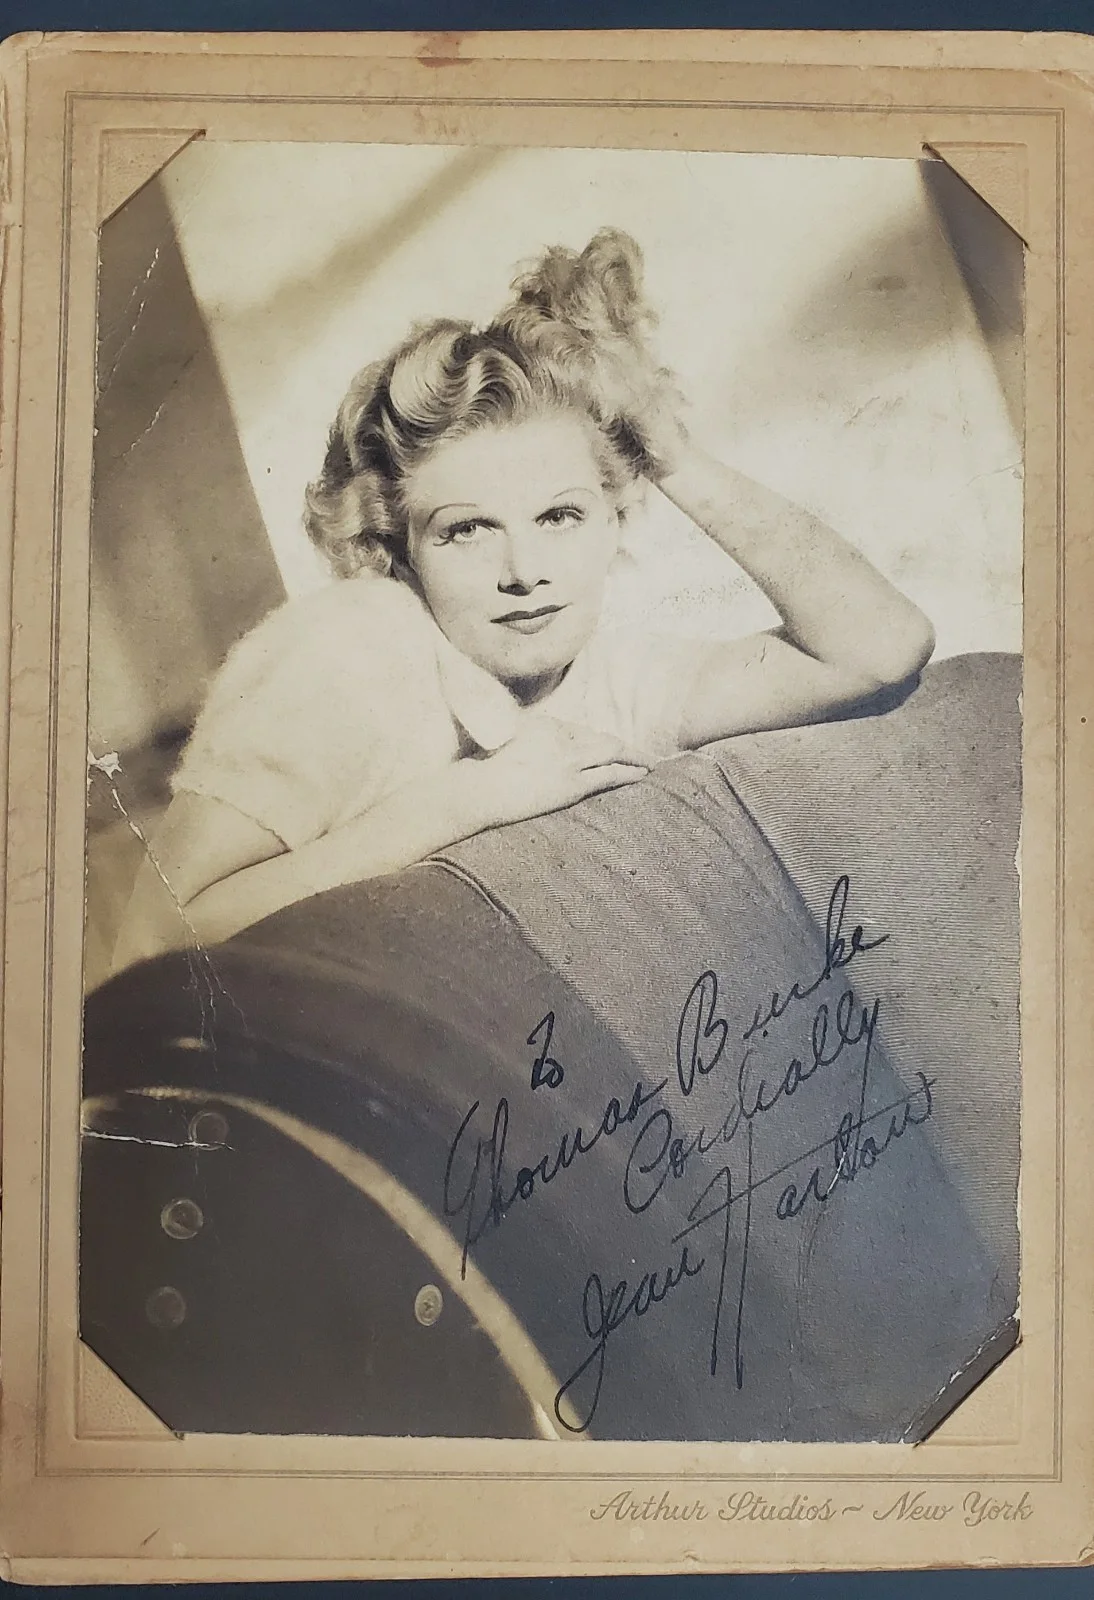 To
Thomas Burke
Cordially
Jean Harlow
Arthur Studios ~ New York